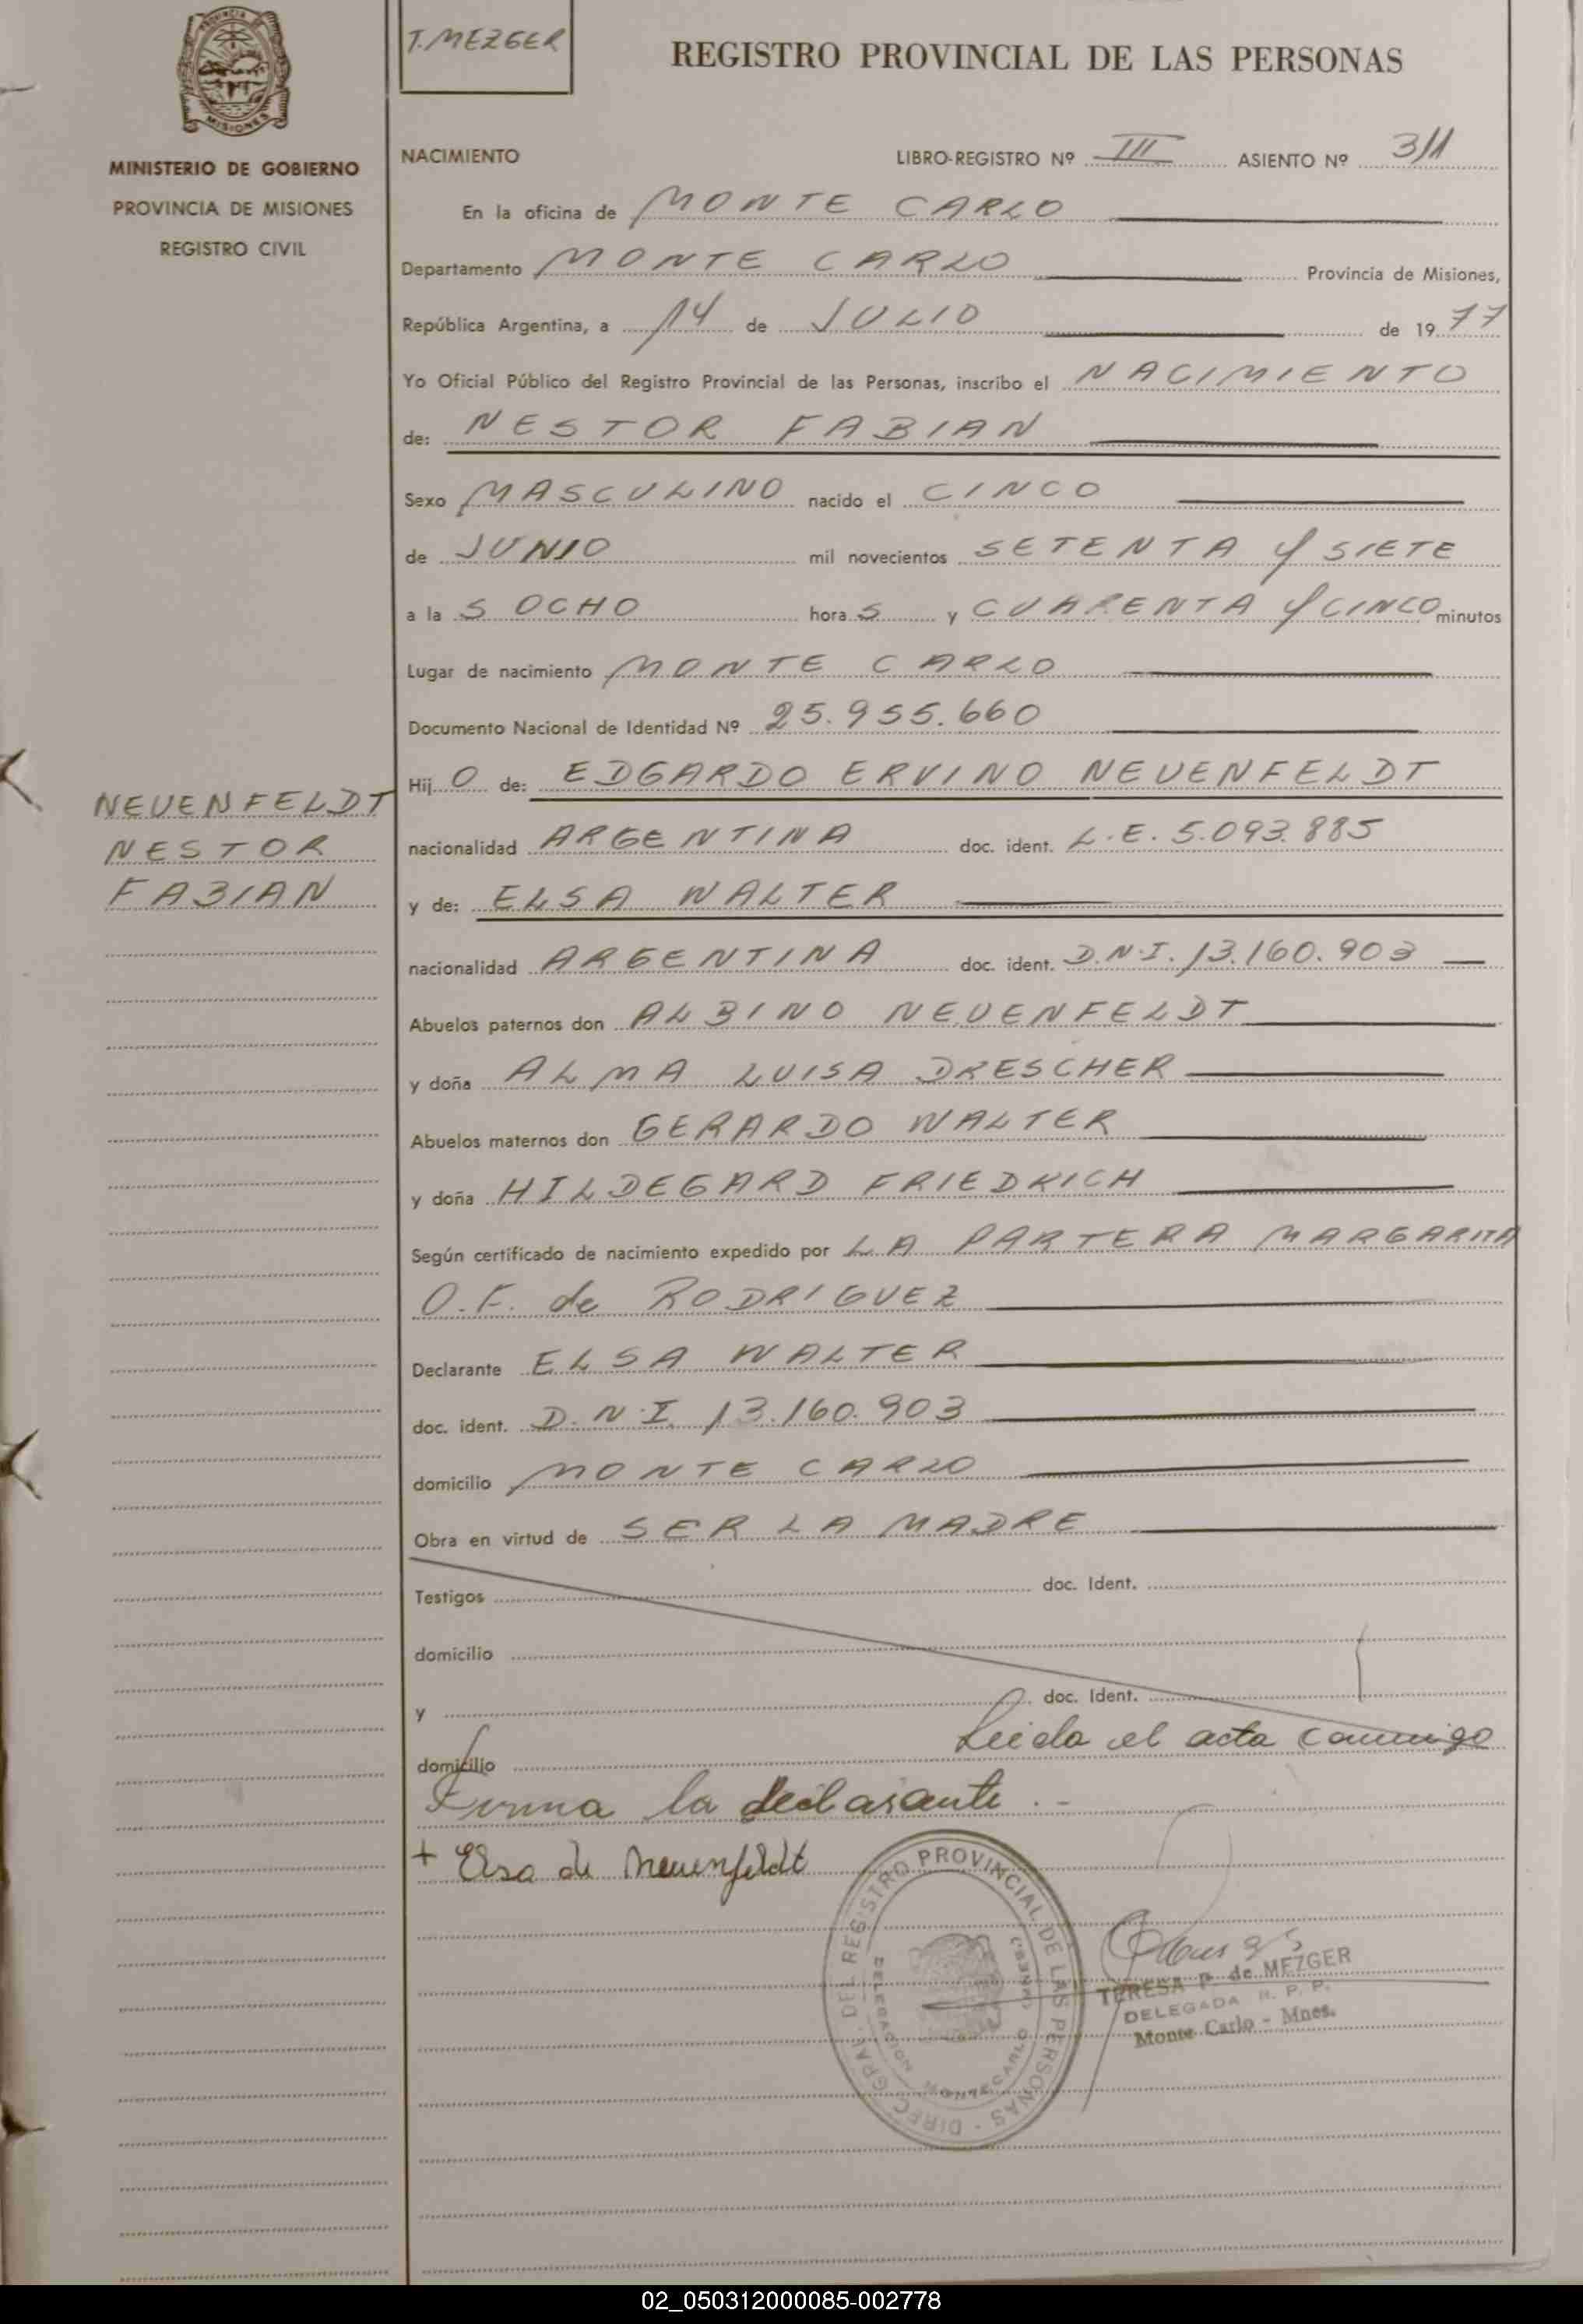 T. MEZGER
REGISTRO PROVINCIAL DE LAS PERSONAS
MISIONES
MINISTERIO DE GOBIERNO
PROVINCIA DE MISIONES
REGISTRO CIVIL
NACIMIENTO LIBRO-REGISTRO Nº III ASIENTO Nº 311
En la oficina de MONTE CARLO
Departamento MONTE CARLO Provincia de Misiones,
República Argentina, a 14 de JULIO de 1977
Yo Oficial Público del Registro Provincial de las Personas, inscribo el NACIMIENTO
de: NESTOR FABIAN
Sexo MASCULINO nacido el CINCO
de JUNIO mil novecientos SETENTA Y SIETE
a las OCHO horas y CUARENTA Y CINCO minutos
Lugar de nacimiento MONTE CARLO
Documento Nacional de Identidad Nº 25.955.660
Hijo de: EDGARDO ERVINO NEUENFELDT
NEUENFELDT
NESTOR
FABIAN
nacionalidad ARGENTINA doc. ident. L.E. 5.093.885
y de: ELSA WALTER
nacionalidad ARGENTINA doc. ident. D.N.I. 13.160.903
Abuelos paternos don ALBINO NEUENFELDT
y doña ALMA LUISA DRESCHER
Abuelos maternos don GERARDO WALTER
y doña HILDEGARD FRIEDRICH
Según certificado de nacimiento expedido por LA PARTERA MARGARITA
O.F. de RODRIGUEZ
Declarante ELSA WALTER
doc. ident. D.N.I. 13.160.903
domicilio MONTE CARLO
Obra en virtud de SER LA MADRE
Testigos doc. Ident.
domicilio
y doc. Ident.
domicilio Leida el acta conmigo
Firma la declarante.-
+ Elsa de Neuenfeldt
DIREC. GRAL. DEL REGISTRO PROVINCIAL DE LAS PERSONAS
DELEGACION MONTECARLO
TERESA P. de MEZGER
DELEGADA R. P. P.
Monte Carlo - Mnes.
02_050312000085-002778